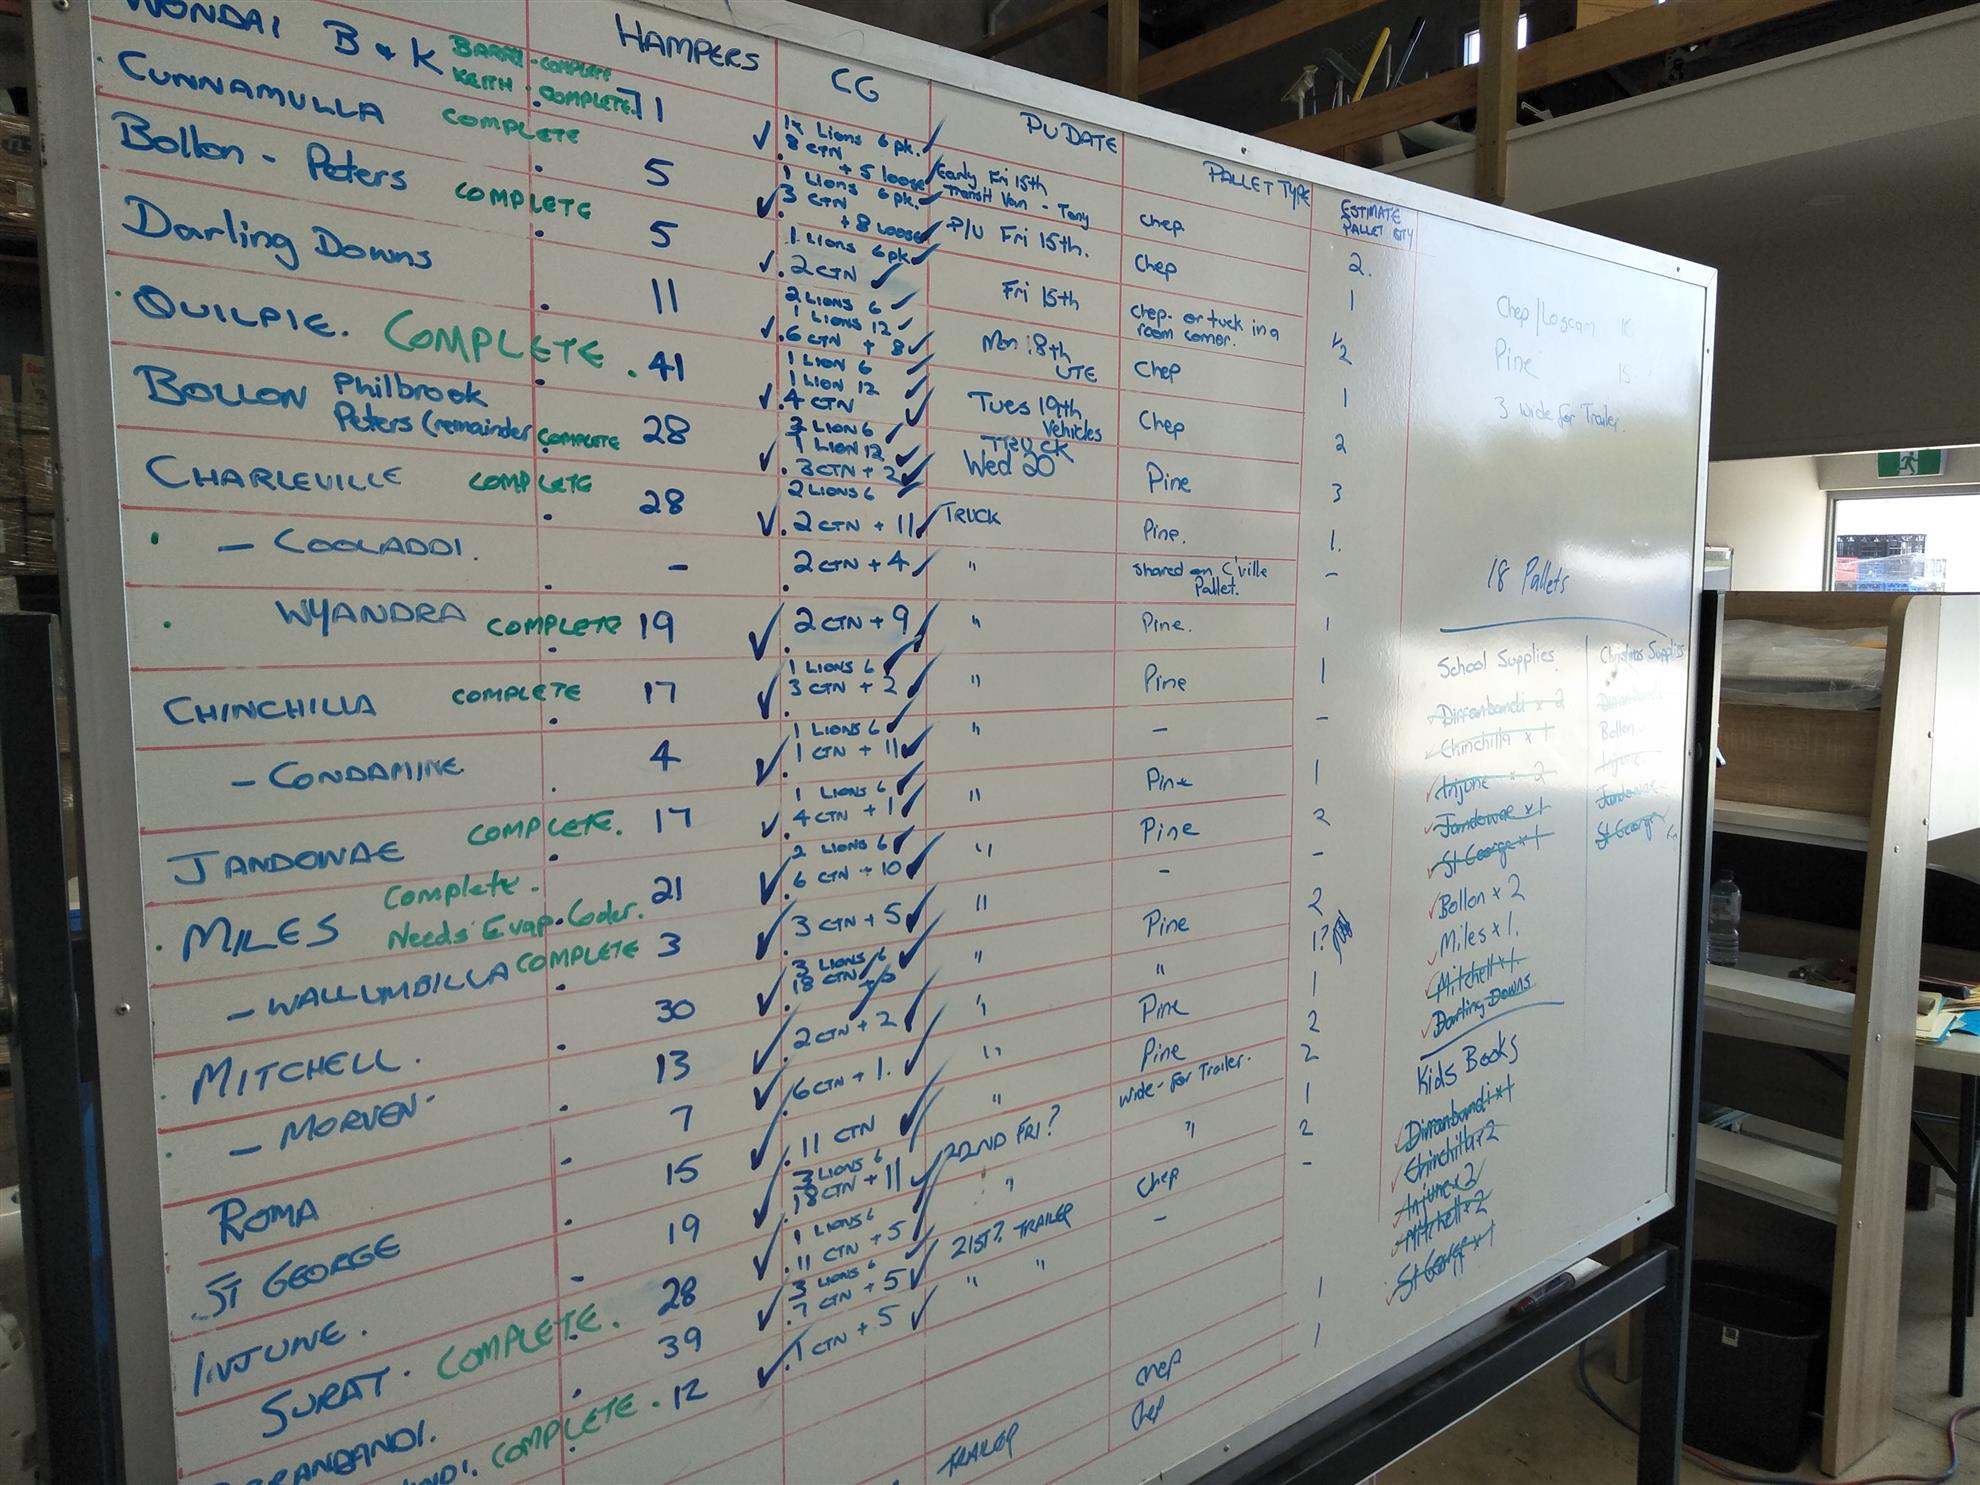 WONDAI B & K BARRY - COMPLETE
KEITH - COMPLETE 71
HAMPERS
CG
PU DATE
PALLET TYPE
ESTIMATE
PALLET QTY
CUNNAMULLA COMPLETE 5
Bollon - Peters COMPLETE 5
Darling Downs 11
QUILPIE. COMPLETE. 41
BOLLON Philbrook
Peters (remainder COMPLETE 28
CHARLEVILLE COMPLETE 28
- COOLADDI. -
WYANDRA COMPLETE 19
CHINCHILLA COMPLETE 17
- CONDAMINE 4
JANDOWAE COMPLETE. 17
MILES Complete.
Needs Evap. Cooler. 21
- WALLUMBILLA COMPLETE 3
MITCHELL. 30
- MORVEN 13
ROMA 7
ST GEORGE 15
INJUNE. 19
SURAT. COMPLETE. 28
39
COMPLETE. 12
1x Lions 6 pk.
8 CTN
+ 5 loose
1 Lions 6 pk.
3 CTN
+ 8 LOOSE
1 Lions 6pk
2 CTN
2 LIONS 6
1 LIONS 12
6 CTN + 8
1 LION 6
1 LION 12
4 CTN
LION 6
1 LION 12
3 CTN + 2
2 LIONS 6
2 CTN + 11
2 CTN + 4
2 CTN + 9
1 LIONS 6
3 CTN + 2
1 LIONS 6
1 CTN + 11
1 LIONS 6
4 CTN + 1
2 LIONS 6
6 CTN + 10
3 CTN + 5
3 LIONS 6
18 CTN
2 CTN + 2
6 CTN + 1.
11 CTN
3 LIONS 6
18 CTN + 11
1 LIONS 6
11 CTN + 5
3 LIONS 6
7 CTN + 5
1 CTN + 5
Early Fri 15th
Transit Van - Tony
P/U Fri 15th.
Fri 15th
Mon 18th
UTE
Tues 19th
Vehicles
TRUCK
Wed 20
TRUCK
"
"
"
"
"
"
"
"
"
"
"
22ND FRI?
"
21ST? TRAILER
" "
TRAILER
Chep
Chep
Chep. or tuck in a
room corner.
Chep
Chep
Pine
Pine.
Shared on C'ville
Pallet.
Pine.
Pine
-
Pine
Pine
-
Pine
"
Pine
Pine
Wide - for Trailer.
"
Chep
-
Chep
Chep
2.
1
1/2
1
2
3
1.
-
1
1
-
1
2
-
2
1?
1
2
2
1
2
-
1
1
Chep/Loscam
Pine 15
3 wide for Trailer.
18 Pallets
School Supplies
Dirranbandi x 2
Chinchilla x 1
Injune x 2
Jandowae x 1
St George x 1
Bollon x 2
Miles x 1.
Mitchell x 1.
Darling Downs
Christmas Supplies
Dirranbandi
Bollon
Injune
Jandowae
St George
Kids Books
Dirranbandi x 1
Chinchilla x 2
Injune x 2
Mitchell x 2
St George x 1